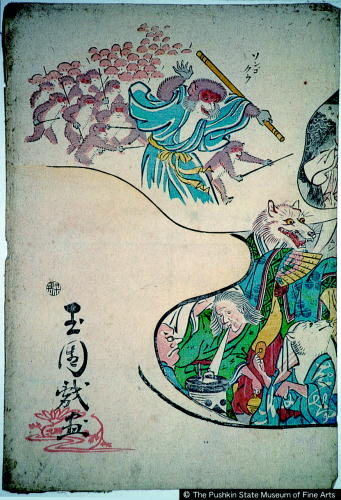 ソンゴ
クウ
玉 戯画
© The Pushkin State Museum of Fine Arts